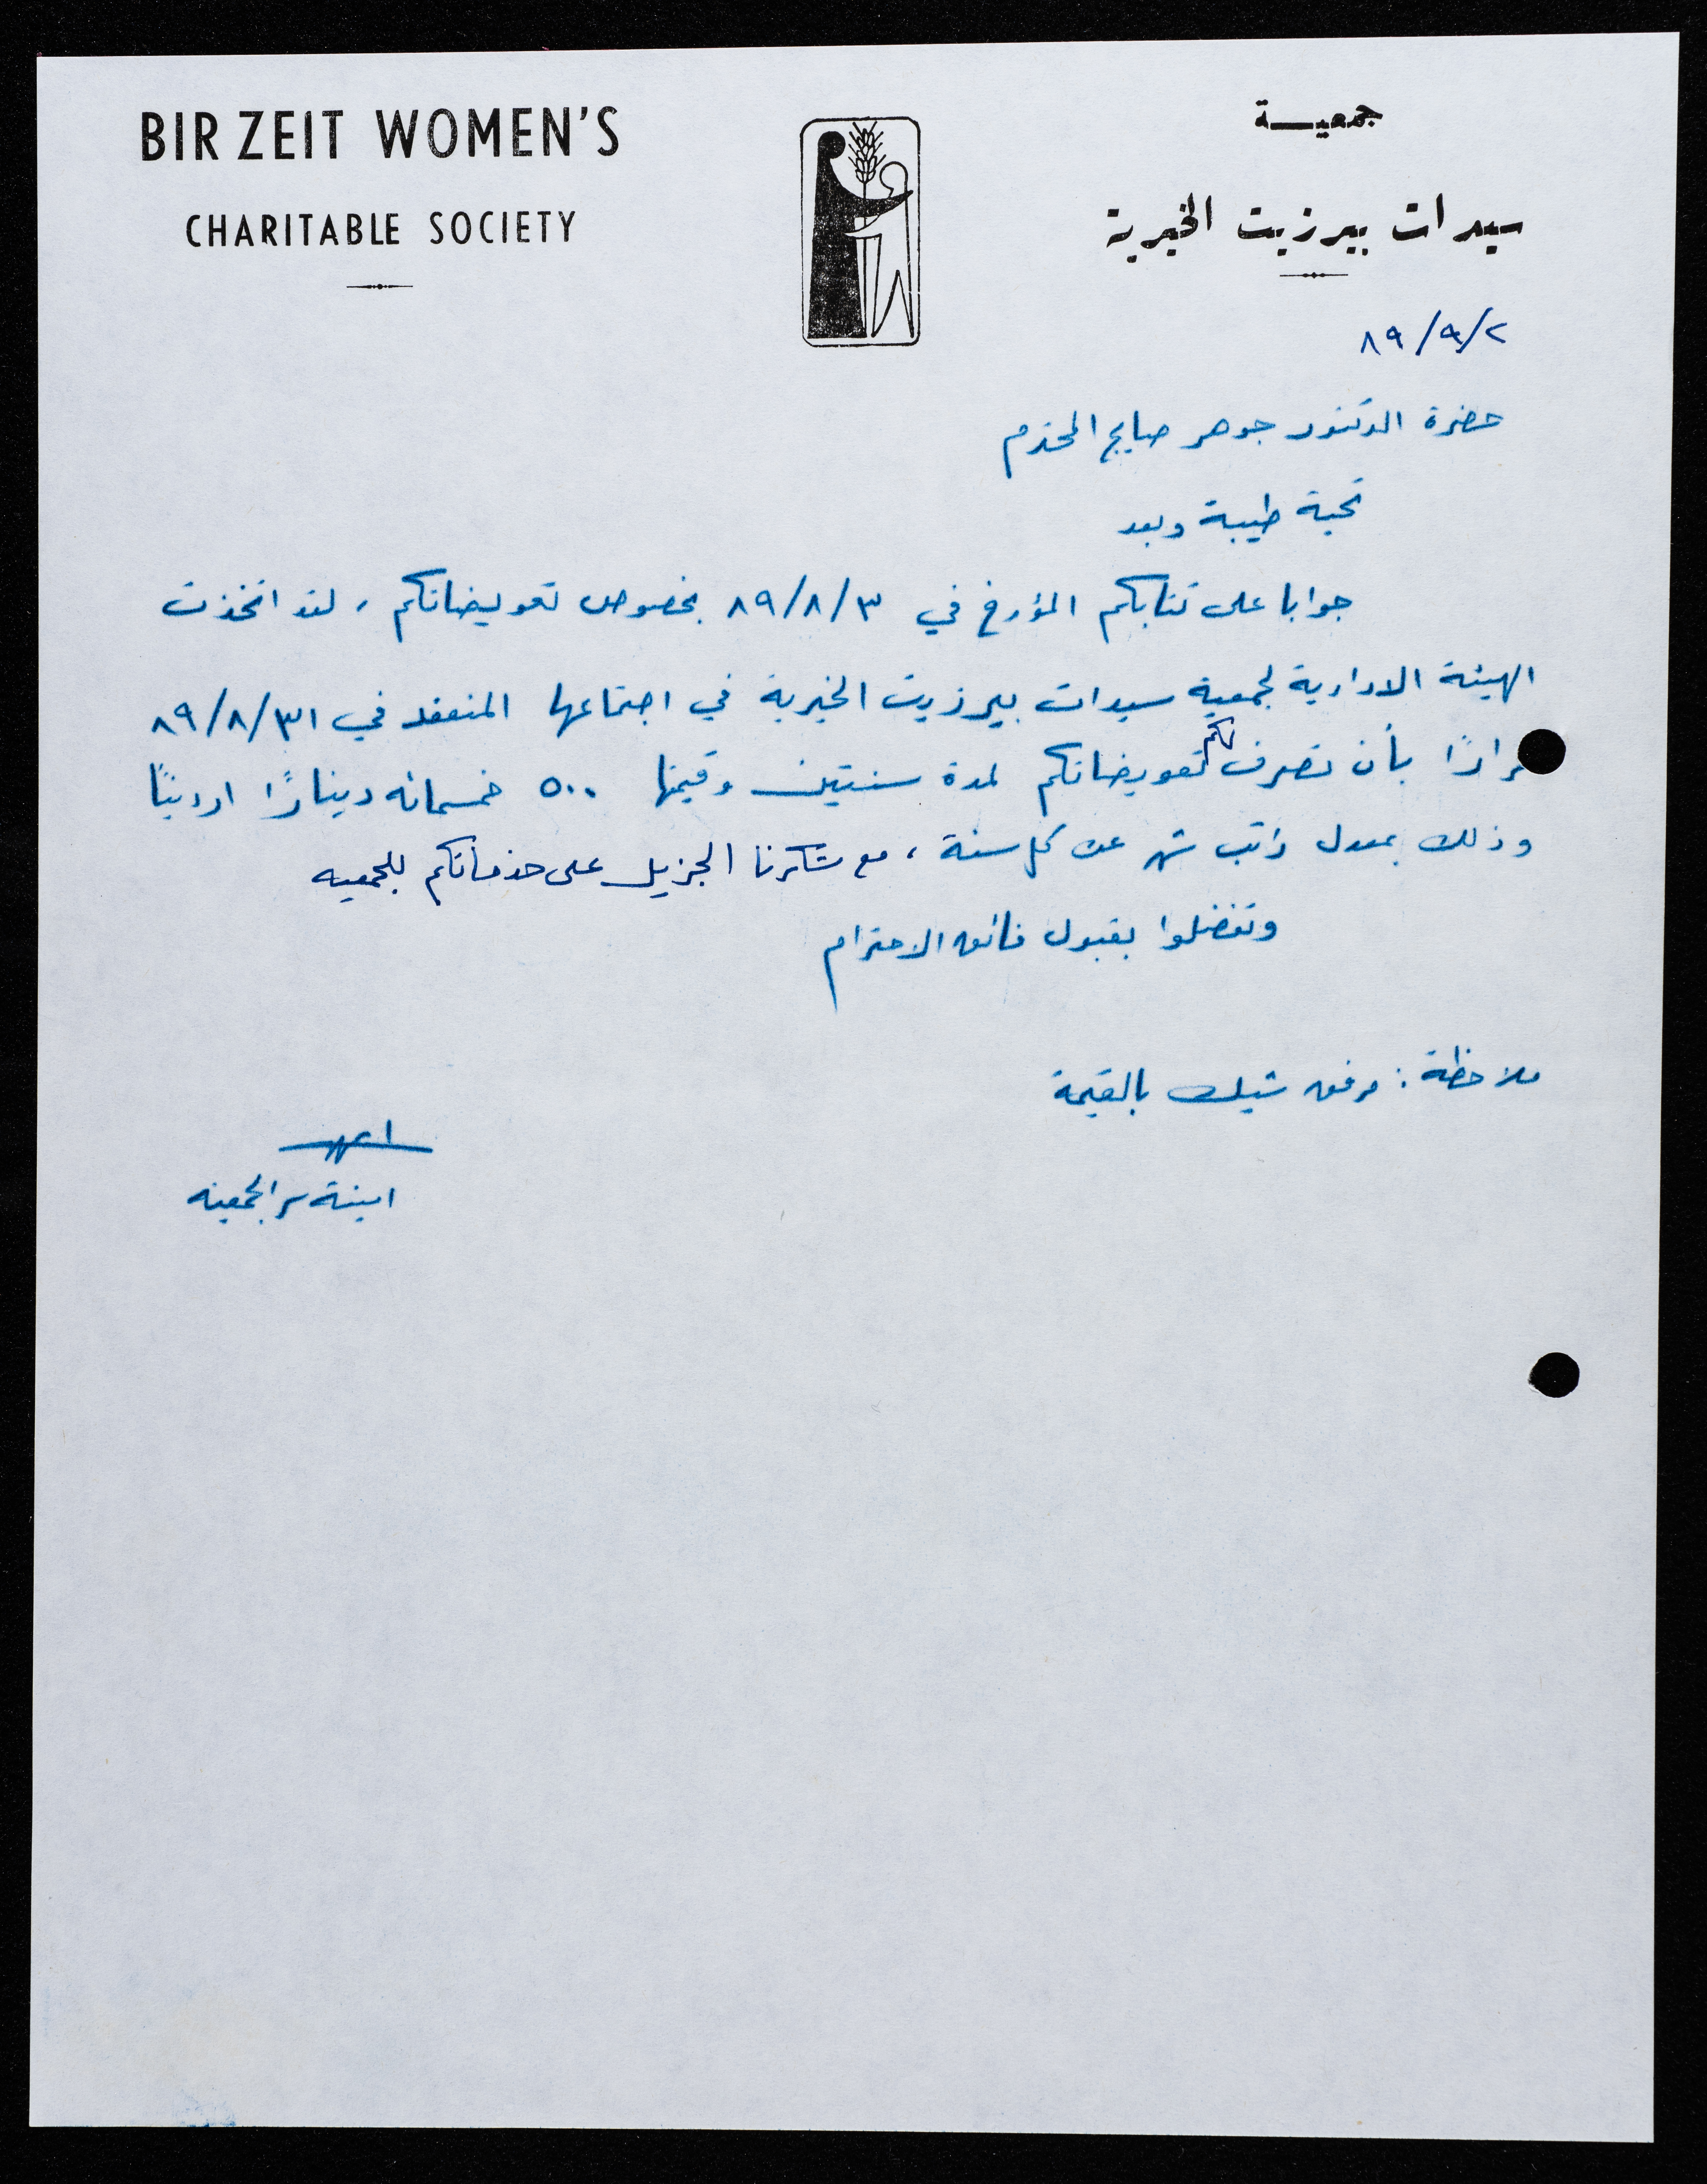 BIR ZEIT WOMEN'S
CHARITABLE SOCIETY
جمعية
سيدات بيرزيت الخيرية
٨٩/٩/٢
حضرة الدكتور جوهر صايج المحترم
تحية طيبة وبعد
جوابا على كتابكم المؤرخ في ٨٩/٨/٣ بخصوص تعويضاتكم ، لقد اتخذت
الهيئة الادارية لجمعية سيدات بيرزيت الخيرية في اجتماعها المنعقد في ٨٩/٨/٣١
قرارًا بأن تصرف لكم تعويضاتكم لمدة سنتين وقيمتها ٥٠٠ خمسمائه دينارًا اردنيًا
وذلك بمعدل راتب شهر عن كل سنة ، مع شكرنا الجزيل على خدماتكم للجمعيه
وتفضلوا بقبول فائق الاحترام
ملاحظة : مرفق شيك بالقيمة
امينة سر الجمعيه